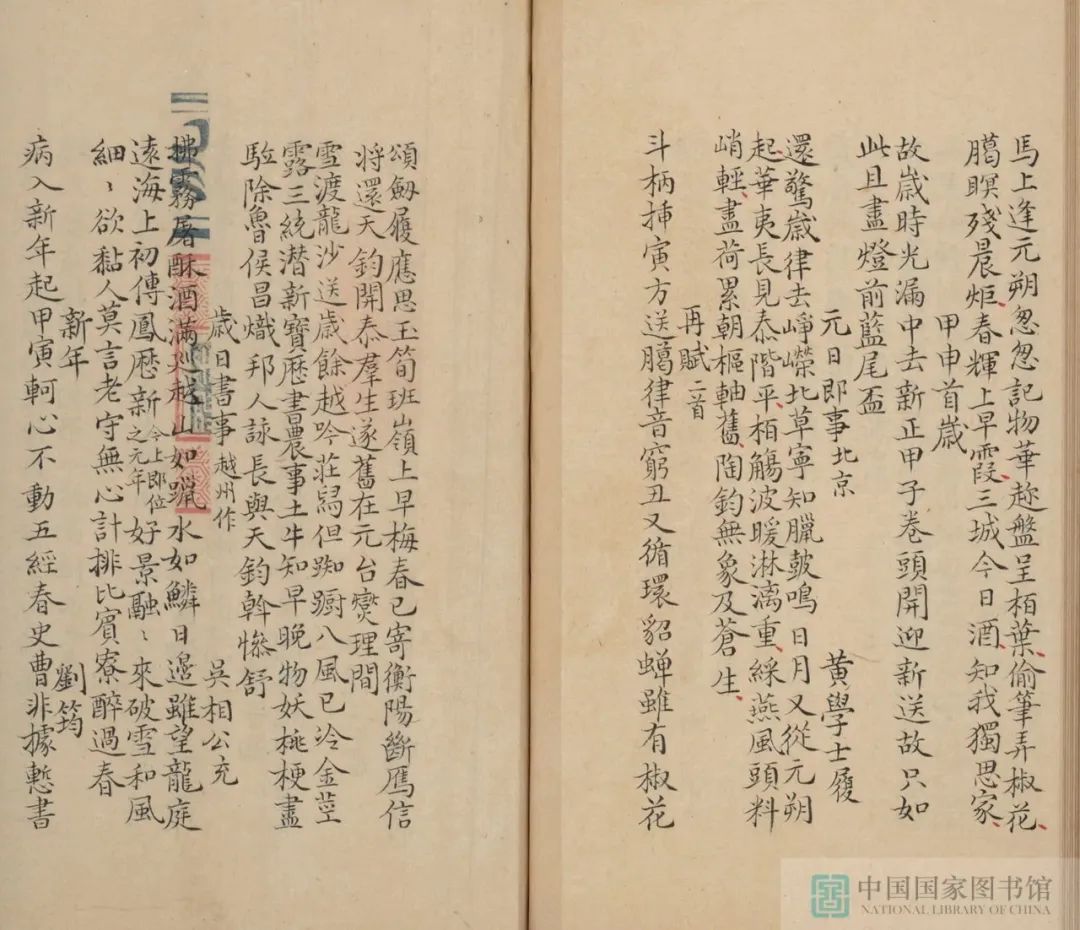 馬上逢元朔忽忽記物華趂盤呈栢葉偷筆弄椒花
臈暝殘晨炬春輝上早霞三城今日酒知我獨思家
甲申首歲
故歲時光漏中去新正甲子卷頭開迎新送故只如
此且盡燈前藍尾盃
元日即事北京 黄學士履
還驚歲律去崢嶸北草寧知臘鼓鳴日月又從元朔
起華夷長見泰階平栢觴波暖淋漓重綵燕風頭料
峭輕盡荷累朝樞軸舊陶鈞無象及蒼生
再賦二首
斗柄揷寅方送臈律音窮丑又循環貂蟬雖有椒花
頌劒履應思玉筍班嶺上早梅春已寄衡陽斷鴈信
將還天鈞開泰羣生遂舊在元台爕理間
雪渡龍沙送歲餘越吟莊舄但踟躕八風已泠金莖
露三統潜新寶歷書農事土牛知早晚物妖桃梗盡
驗除魯侯昌熾邦人詠長與天鈞斡慘舒
歲日書事越州作 吳相公充
拂霧屠酥酒滿廵越山如蠟水如鱗日邉雖望龍庭
逺海上初傳鳳歴新今上即位之元年好景融〻來破雪和風
細〻欲黏人莫言老守無心計排比賓寮醉過春
新年 劉筠
病入新年起甲寅軻心不動五經春史曹非據慙書
中国国家图书馆
NATIONAL LIBRARY OF CHINA